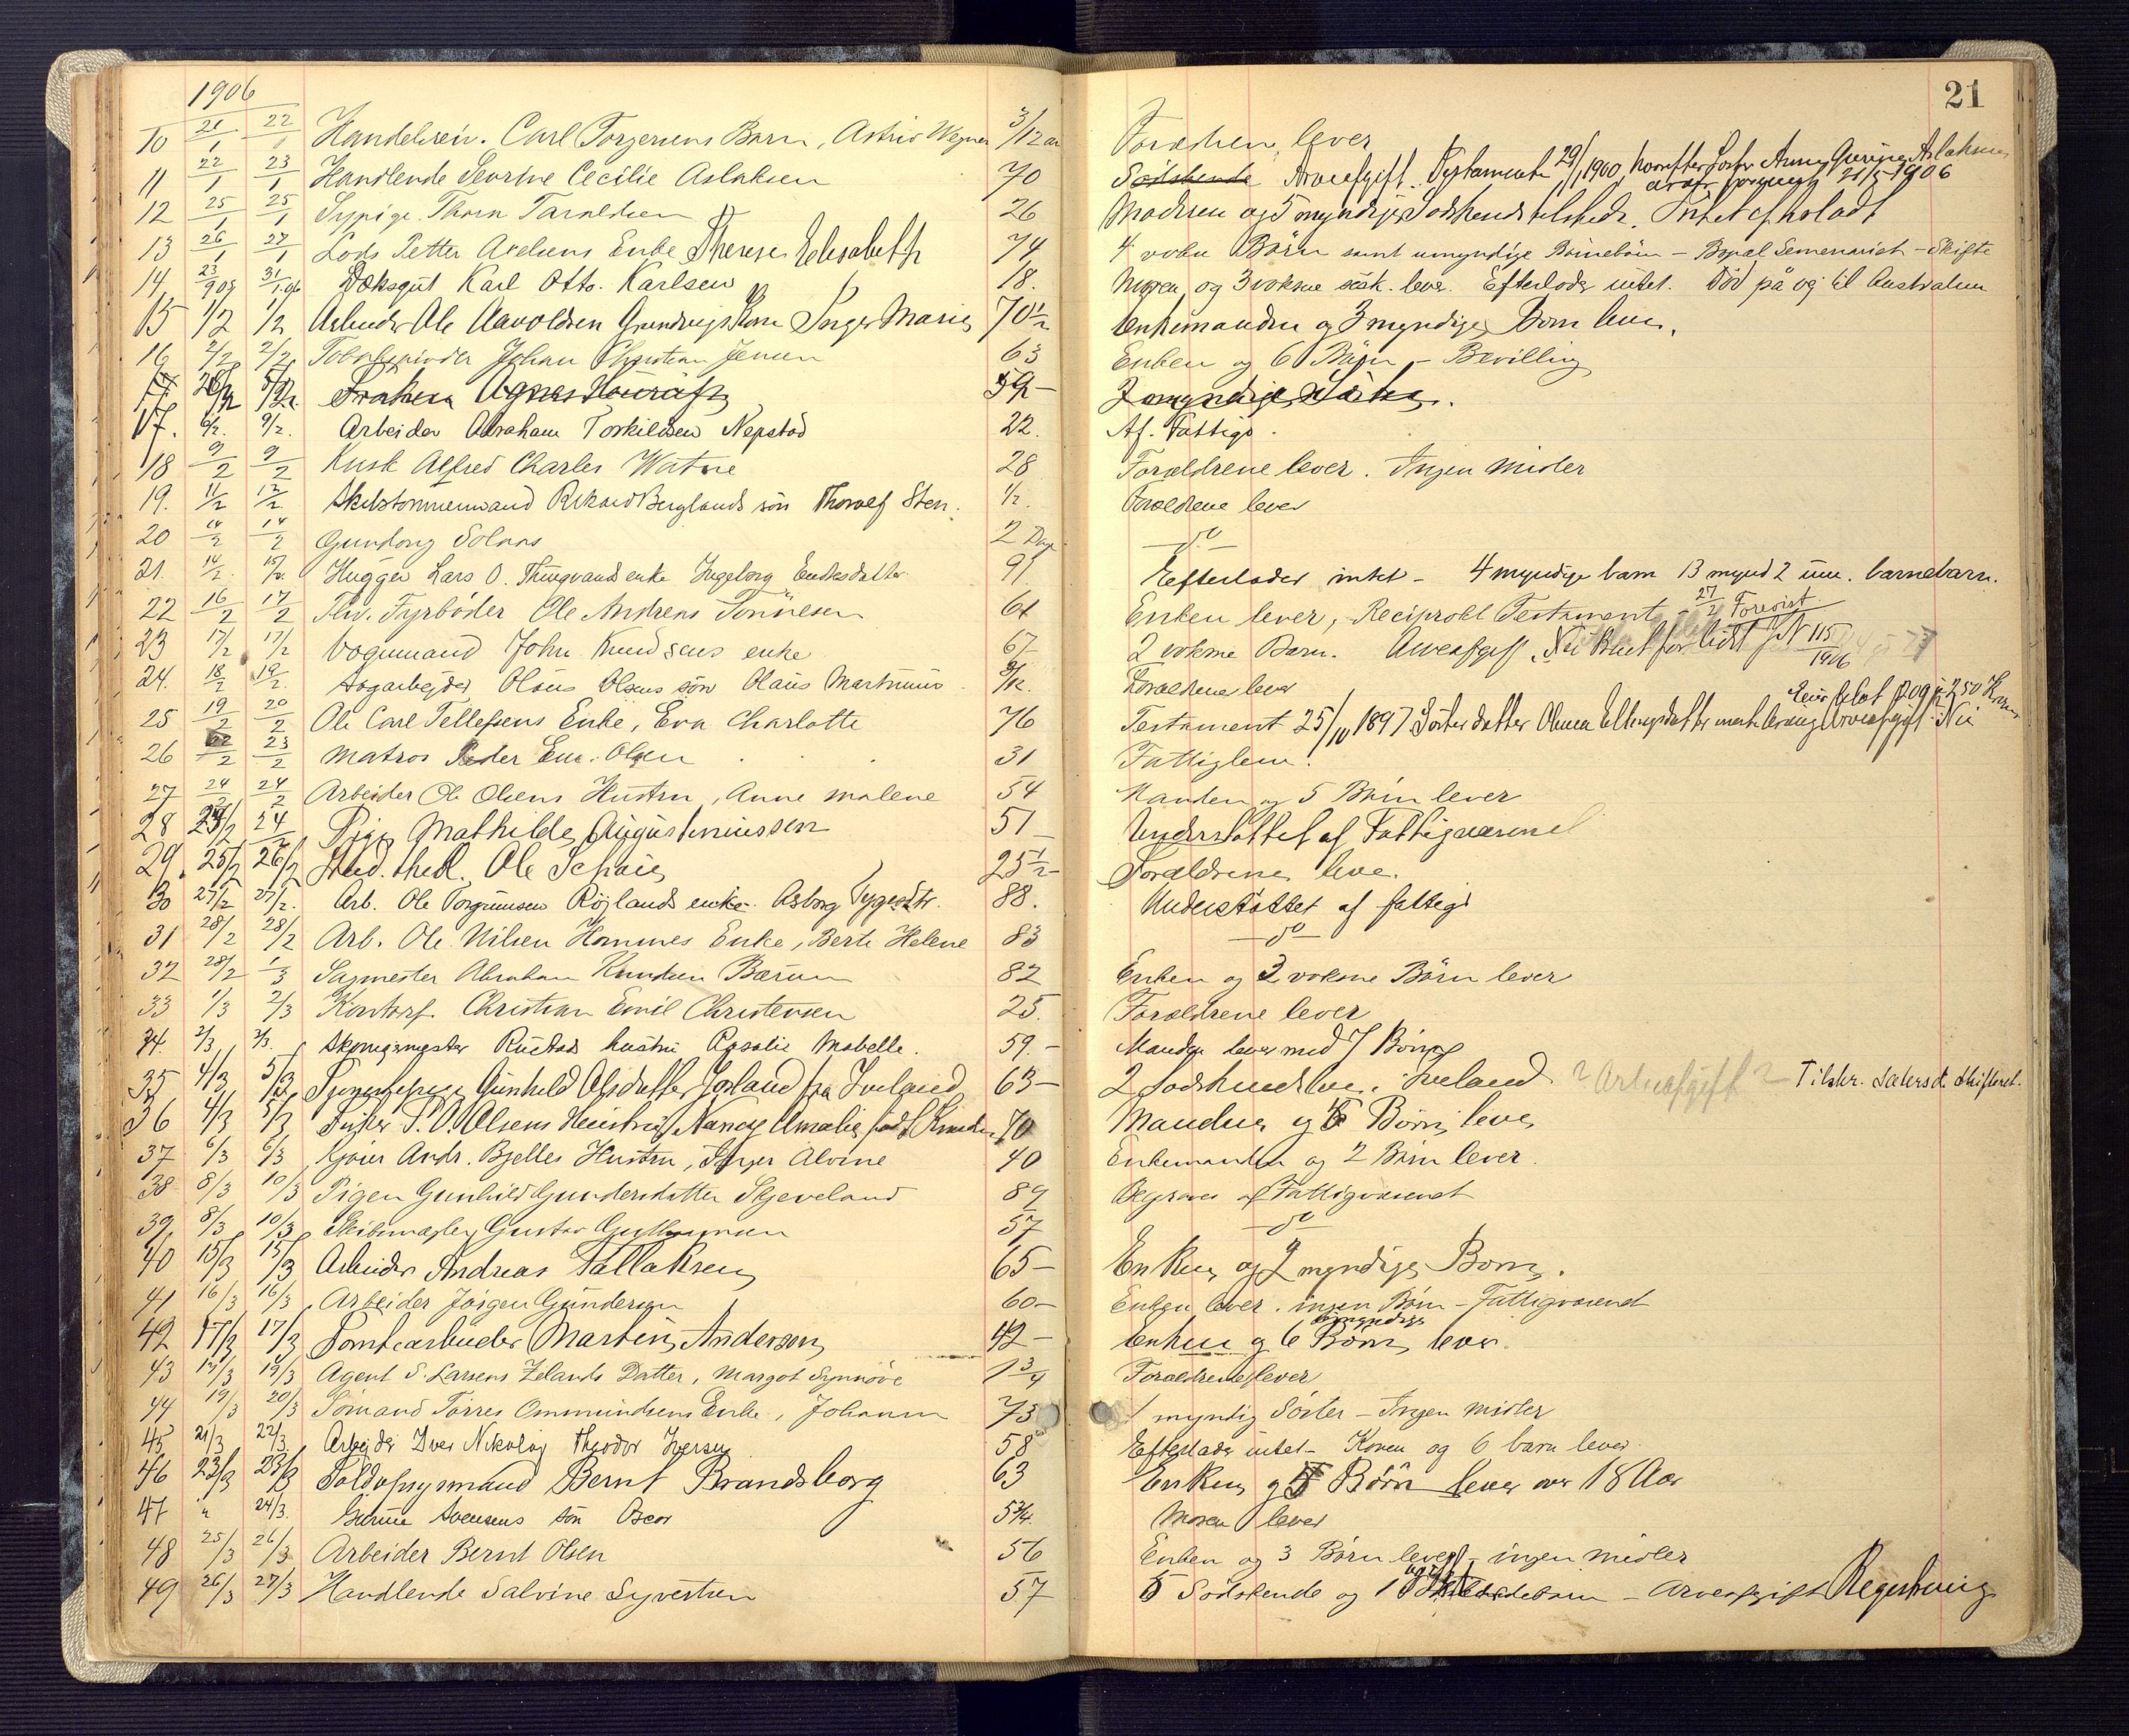 21
1906
10 21/1 22/1 Handelsrei. Carl Torgersens Barn, Astrid Wegner 3/12 aar Forældren lever
11 22/1 23/1 Handlende Severine Cecilie Aslaksen 70 Sødskende Arveafgift. Testamente 29/1 1900, hvorefter Anne Aslaksen 21/5 1906
12 25/1 25/1 Sypige Thora Taraldsen 26 Moderen og 5 myndige Sødskende tilstede. Intet efterladt
13 26/1 27/1 Lods Petter Axelsens Enke Therese Elisabeth 74 4 voksne Børn samt umyndige Børnebørn - Skifte
14 23/9 05 31/1 06 Dæksgut Karl Otto Karlsen 18. Moren og 3 voksne søsk. lever. Efterlader intet. Død på vej til Australien
15 1/2 1/2 Arbeider Ole Aavoldsen Grundvigs Kone Inger Marie 70 1/2 Enkemanden og 3 myndige Børn lever.
16 2/2 2/2 Tobakspinder Johan Christian Jensen 63 Enken og 6 Børn - Bevilling
17 5/2 Frøken Agnes 59 - 2 myndige Søstre.
17. 6/2. 9/2. Arbeider Abraham Torkildsen Nepstad 22. Af. Fattigv.
18 9/2 9/2 Kusk Alfred Charles Watne 28 Forældrene lever. Ingen Midler
19. 11/2 12/2 Skibstømmermand Rikard Berglands søn Thoralf Sten. 1/2. Forældrene lever
20 14/2 14/2 Gundvig Solaas 2 Dage - do -
21. 14/2. 15/2. Hugger Lars O. Thingvands enke Ingeborg Endresdatter 91 Efterlader intet - 4 myndige barn 13 mynd 2 um. barnebarn.
22 16/2 17/2 Fhv. Fyrbøder Ole Andreas Tønnesen 61 Enken lever, Reciprokt Testament - 27/2 Forevist
23 17/2 17/2 Vognmand John Knudsens enke 67 - 2 voksne Barn. Arveafgift N 115/1906
24. 18/2 19/2. Sagarbejder Olaus Olsens søn Olaus Martinius 9/12. Forældrene lever
25 19/2 20/2 Ole Carl Tellefsens Enke, Eva Charlotte 76 Testament 25/10 1897 Søsterdatter Olava Ellingsdatter Arveafgift Nei
26 22/2 23/2 Matros Peder Em. Olsen 31 Fattiglem.
27 24/2 24/2 Arbeider Ole Olsens Hustru, Anne Malene 54 Manden og 5 Børn lever
28 23/2 24/2 Pige Mathilde Augustinussen 51 - Understøttet af Fattigvæsenet
29. 25/2 26/2 Stud. theol. Ole Schaie 25 1/2 - Forældrene leve.
30 27/2 27/2. Arb. Ole Torgrimsen Røjlands enke Asborg Tygesdtr. 88. Understøttet af fattigv
31 28/2 28/2 Arb. Ole Nilsen Hommes Enke, Berte Helene 83 - do -
32 28/2 1/3 Sagmester Abraham Knudsen Bærum 82 Enken og 3 voksne Børn lever
33 1/3 2/3 Kontorf. Christian Emil Christensen 25. Forældrene lever
34. 2/3 2/3. Rustads hustru Rosalie Mabelle. 59. - Manden lever med 7 Børn
35 4/3 5/3 Tjenestepige Gunhild Olsdatter Jorland fra Iveland 63 - 2 Sødskende lever i Iveland ? Arveafgift ? Tilskr. Sætersd. skifteret.
36 4/3 5/3 Olsens Hustru Nancy Amalie født 70 Manden og 5 Børn lever
37 6/3 6/3 Kjøier Andr. Bjelles Hustru, Inger Alvine 40 Enkemanden og 2 Børn lever.
38 8/3 10/3 Pigen Gunhild Gundersdatter Skjeveland 89 Begraves af Fattigvæsenet
39, 8/3 10/3 Skibsmægler Gustav 57 - do -
40 15/3 15/3 Arbeider Andreas Tallaksen 65 - Enken og 2 myndige Børn.
41 16/3 16/3 Arbeider Jørgen Gundersen 60 - Enken lever. ingen Børn - Fattigvæsenet
42 17/3 17/3 Tomtearbeider Martin Andersen 42 - Enken og 6 umyndige Børn lever.
43 17/3 19/3 Agent S. Larsens Zelands Datter, Margot Synnøve 1 3/4 Forældrene lever
44 19/3 20/3 Sømand Tørres Ommundsens Enke, Johanne 73 1 myndig Søster - Ingen Midler
45 21/3 22/3. Arbejder Iver Nikolaj Theodor Iversen 58 Efterlader intet - Konen og 6 barn lever.
46 23/3 23/3 Toldopsynsmand Bernt Brandsborg 63 Enken og 5 Børn lever over 18 Aar
47 " 24/3. Svensens søn Oscar 5 3/4. Moren lever
48 25/3 26/3 Arbeider Bernt Olsen 56 Enken og 3 Børn lever - ingen Midler
49 26/3 27/3 Handlende Salvine Syvertsen 57 5 Sødskende og 1 - Arveafgift Registrering